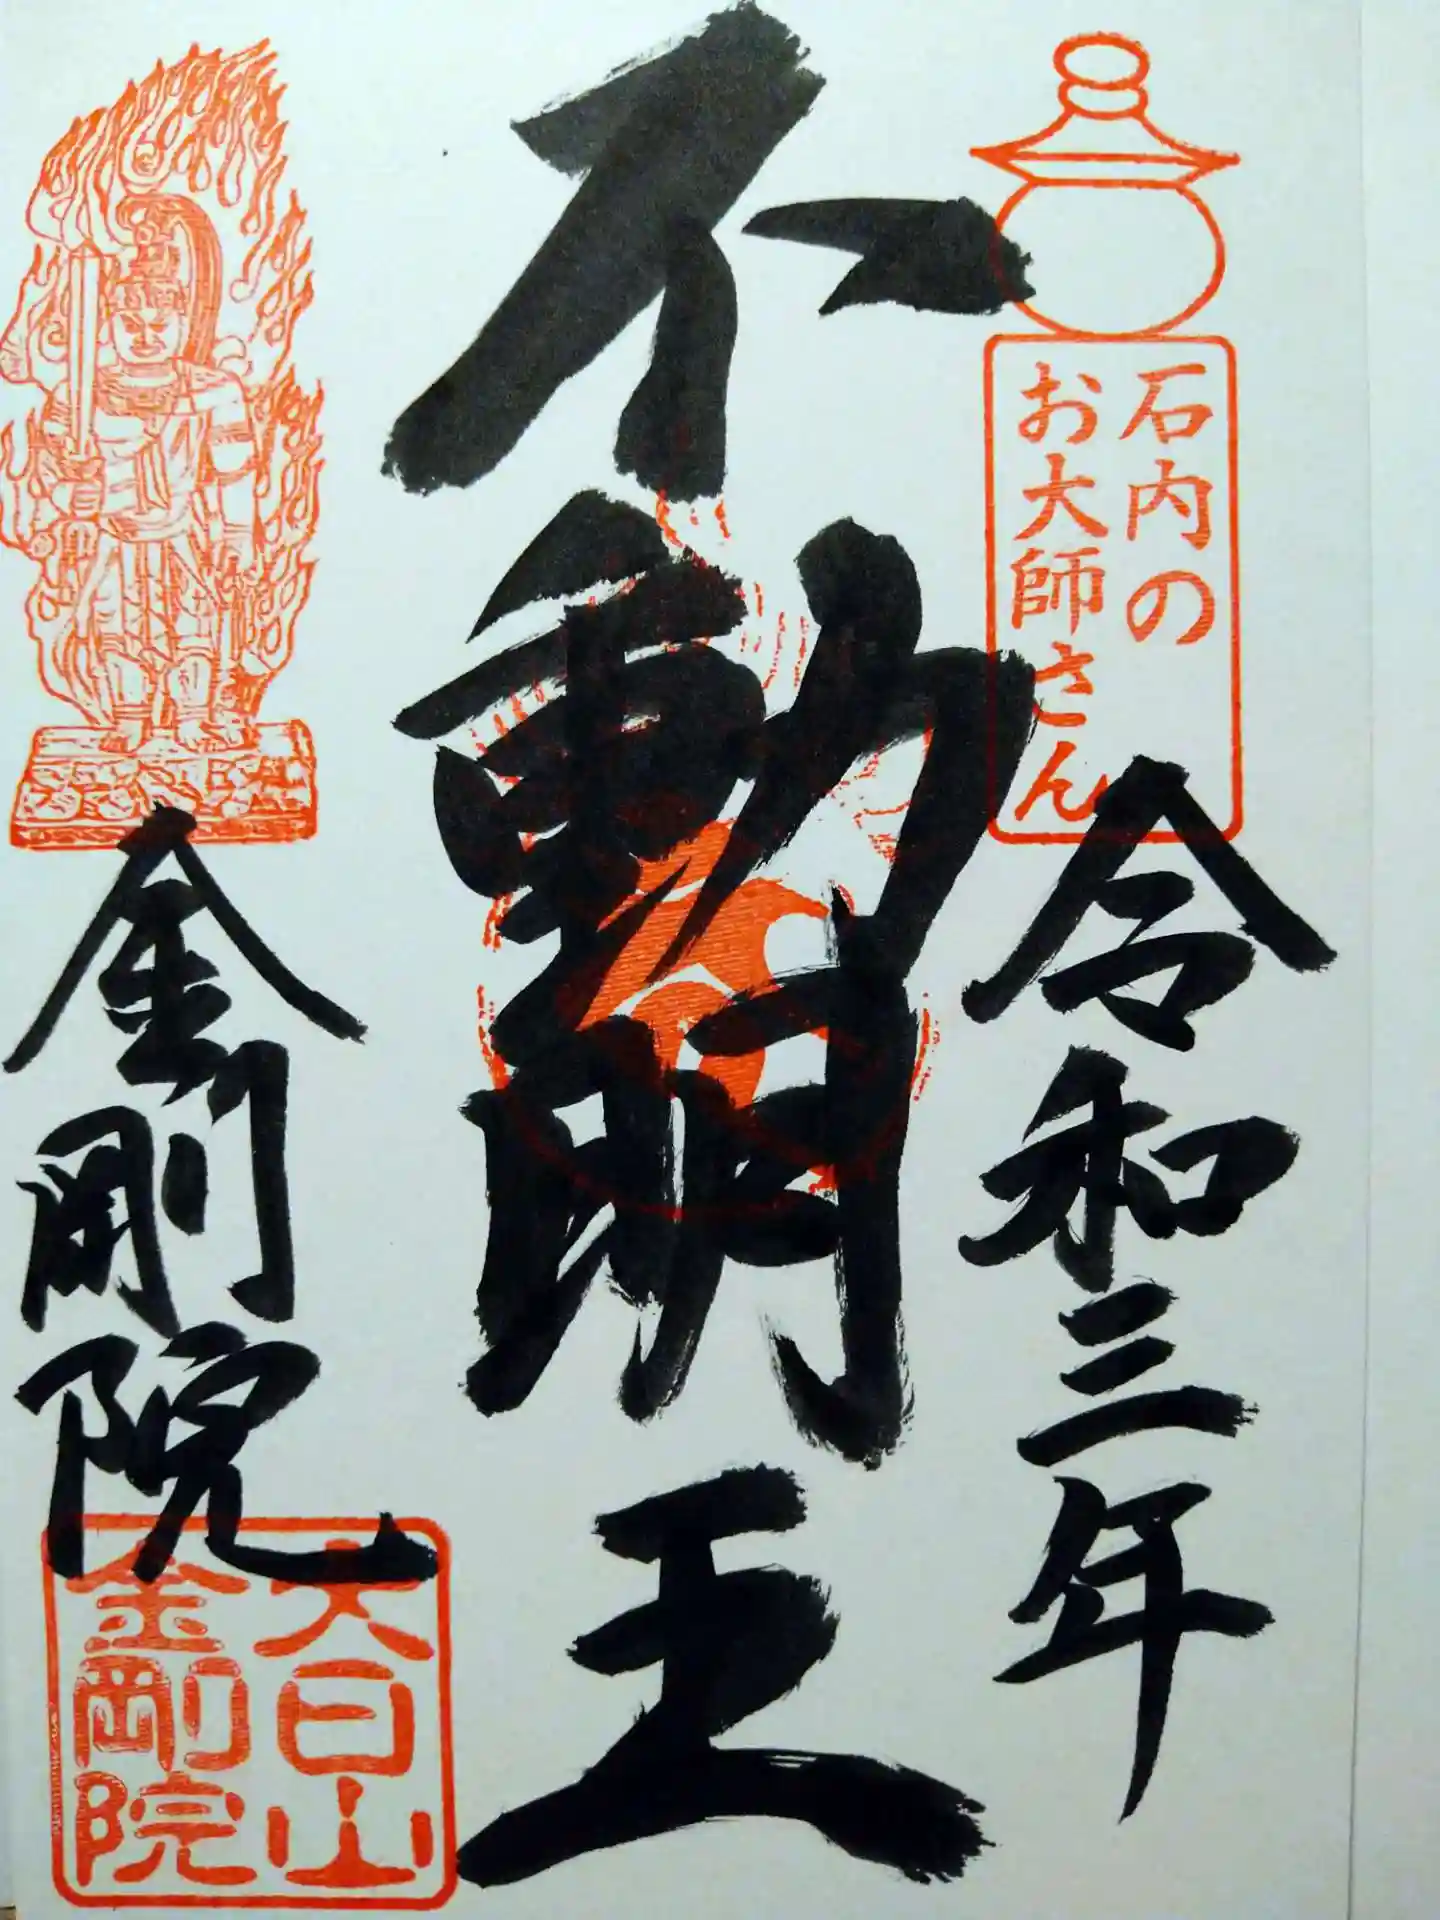 石内の
お大師さん
令和三年
不動明王
金剛院
大日山
金剛院